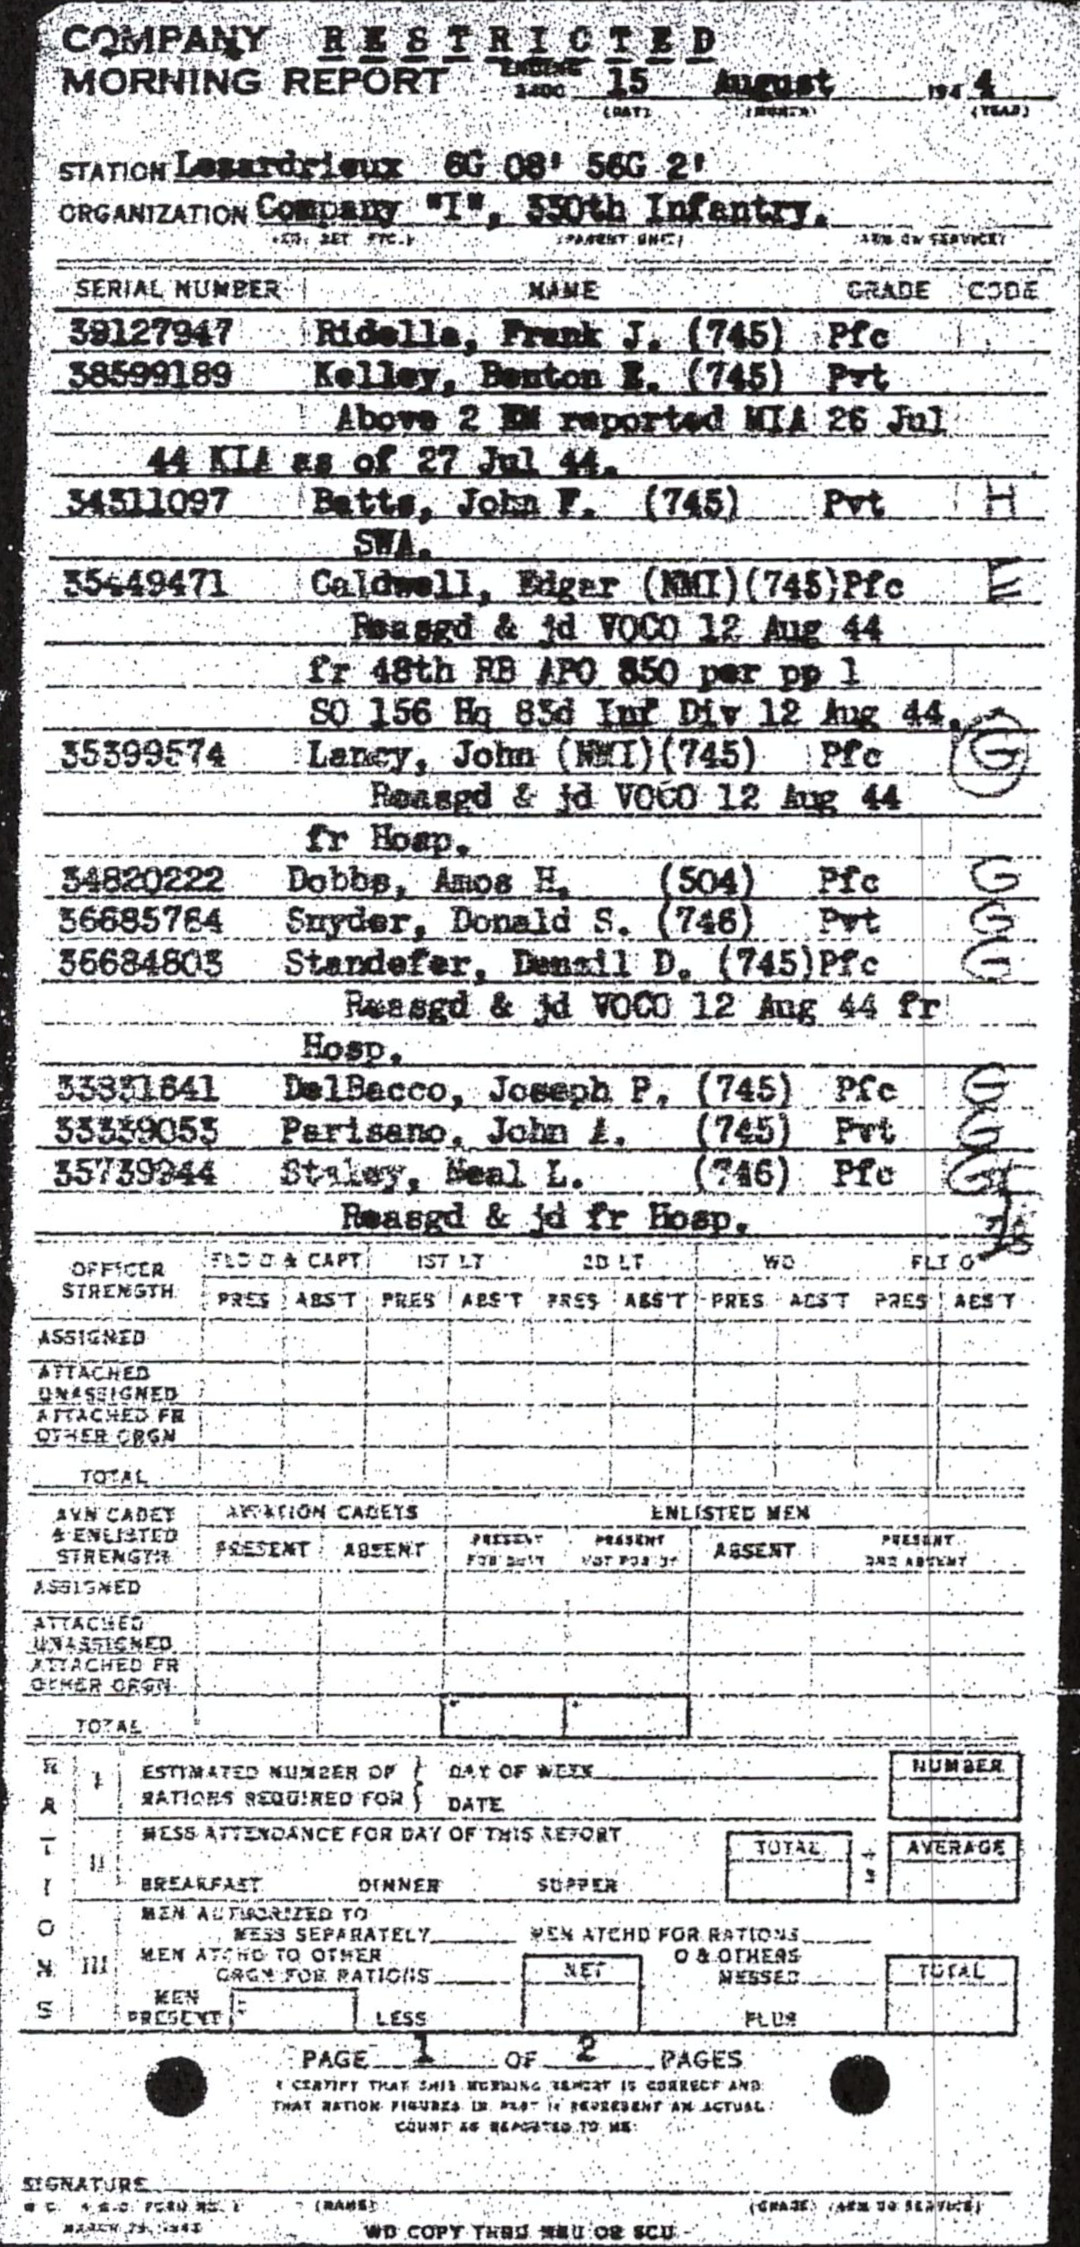 COMPANY R E S T R I C T E D
MORNING REPORT ENDING 2400 15 August 194 4
(DAY) (MONTH) (YEAR)
STATION Lezardrieux 6G 08' 56G 2'
ORGANIZATION Company "I", 330th Infantry.
(PARENT UNIT) (ARM OR SERVICE)
SERIAL NUMBER NAME GRADE CODE
39127947 Ridella, Frank J. (745) Pfc
38599189 Kelley, Benton E. (745) Pvt
Above 2 EM reported MIA 26 Jul
44 KIA as of 27 Jul 44.
34311097 Batts, John F. (745) Pvt H
SWA.
35449471 Caldwell, Edgar (NMI)(745)Pfc E
Reasgd & jd VOCO 12 Aug 44
fr 48th RB APO 850 per pp 1
SO 156 Hq 83d Inf Div 12 Aug 44.
35399574 Lancy, John (NMI)(745) Pfc G
Reasgd & jd VOCO 12 Aug 44
fr Hosp.
34820222 Dobbs, Amos H. (504) Pfc G
36685784 Snyder, Donald S. (746) Pvt G
36684803 Standefer, Denzil D. (745)Pfc G
Reasgd & jd VOCO 12 Aug 44 fr
Hosp.
33831641 DelBacco, Joseph P. (745) Pfc G
33339053 Parisano, John A. (745) Pvt G
35739944 Staley, Neal L. (746) Pfc G
Reasgd & jd fr Hosp.
OFFICER STRENGTH FLD O & CAPT 1ST LT 2D LT WO FLT O
PRES ABS'T PRES ABS'T PRES ABS'T PRES ABS'T PRES ABS'T
ASSIGNED
ATTACHED
UNASSIGNED
ATTACHED FR
OTHER ORGN
TOTAL
AVN CADET & ENLISTED STRENGTH AVIATION CADETS ENLISTED MEN
PRESENT ABSENT PRESENT FOR DUTY PRESENT NOT FOR DY ABSENT PRESENT AND ABSENT
ASSIGNED
ATTACHED
UNASSIGNED
ATTACHED FR
OTHER ORGN
TOTAL
RATIONS
I ESTIMATED NUMBER OF RATIONS REQUIRED FOR } DAY OF WEEK NUMBER
DATE
II MESS ATTENDANCE FOR DAY OF THIS REPORT TOTAL AVERAGE
BREAKFAST DINNER SUPPER
III MEN AUTHORIZED TO
MESS SEPARATELY MEN ATCHD FOR RATIONS
MEN ATCHD TO OTHER O & OTHERS
ORGN FOR RATIONS NET MESSED TOTAL
MEN
PRESENT LESS PLUS
PAGE 1 OF 2 PAGES
I CERTIFY THAT THIS MORNING REPORT IS CORRECT AND
THAT RATION FIGURES IN PART III REPRESENT AN ACTUAL
COUNT AS REPORTED TO ME
SIGNATURE
W. D., A. G. O. FORM NO. 1 (NAME) (GRADE) (ARM OR SERVICE)
MARCH 1943
WD COPY THRU MRU OR SCU